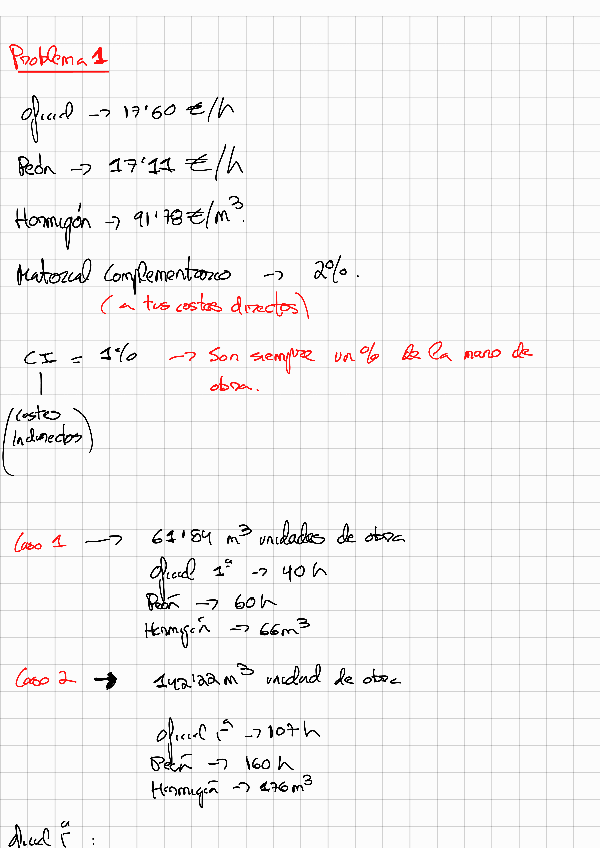 Problema 1
Oficial → 17'60 €/h
Peón → 17'11 €/h
Hormigón → 91'78 €/m³.
Material Complementario → 2%.
(a tus costes directos)
CI = 1% → Son siempre un % de la mano de
obra.
(Costes
Indirectos)
Caso 1 → 61'84 m³ unidades de obra
Oficial 1ª → 40 h
Peón → 60 h
Hormigón → 66 m³
Caso 2 → 142'22 m³ unidad de obra
Oficial 1ª → 107 h
Peón → 160 h
Hormigón → 176 m³
Oficial 1ª :